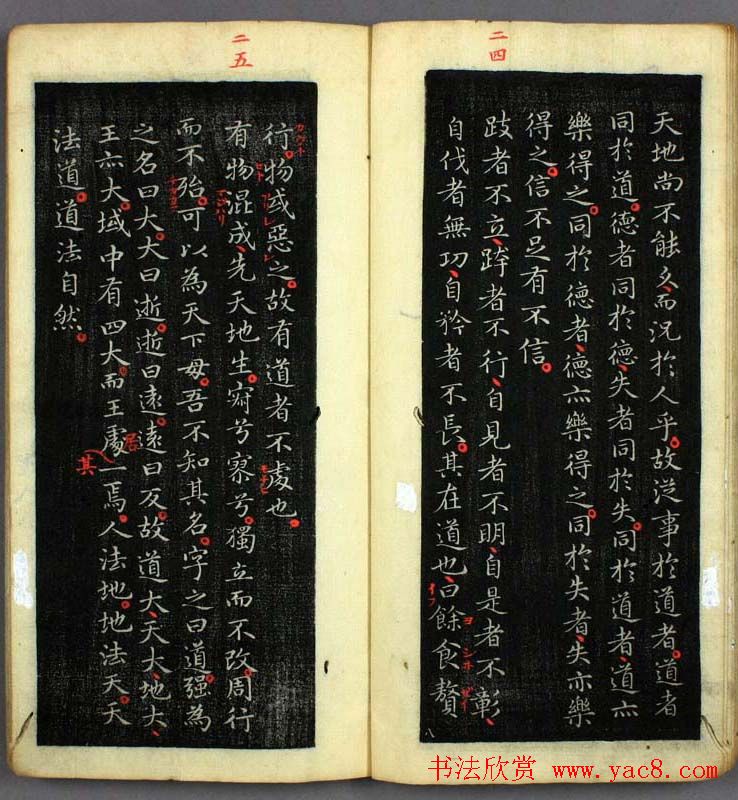 二四
天地尚不能久而況於人乎故從事於道者道者
同於道德者同於德失者同於失同於道者道亦
樂得之同於德者德亦樂得之同於失者失亦樂
得之信不足有不信
跂者不立跨者不行自見者不明自是者不彰
自伐者無功自矜者不長其在道也曰餘食贅
イフ
ヨ
八
二五
行物或惡之故有道者不處也
有物混成先天地生寂兮寥兮獨立而不改周行
而不殆可以為天下母吾不知其名字之曰道強為
之名曰大大曰逝逝曰遠遠曰反故道大天大地大
王亦大域中有四大而王處一焉人法地地法天天
居
其
法道道法自然
书法欣赏 www.yac8.com